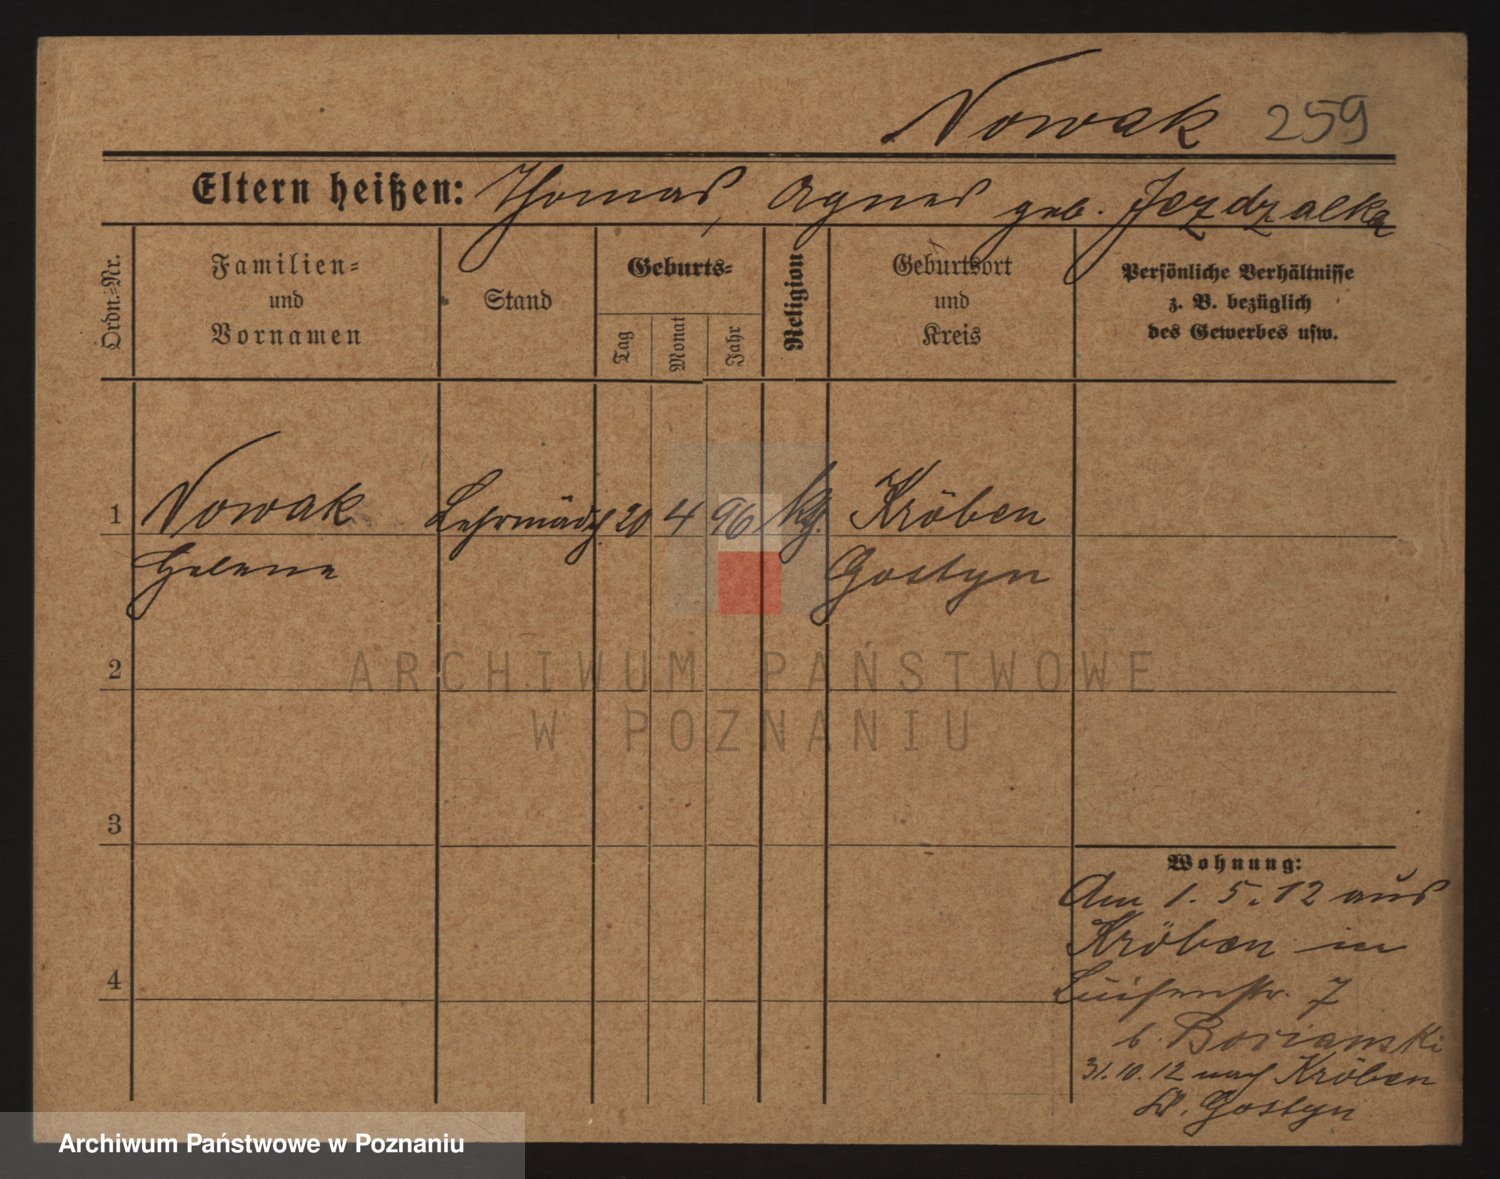 Nowak 259
Eltern heißen: Thomas, Agnes geb. Jezdzalka
Ordn.=Nr.
Familien=
und
Vornamen
Stand
Geburts=
Tag
Monat
Jahr
Religion
Geburtsort
und
Kreis
Persönliche Verhältnisse
z. B. bezüglich
des Gewerbes usw.
1 Nowak Lehrmädch. 20 4 96 kg. Kröben
Helene Gostyn
2
3
4
Wohnung:
Am 1. 5. 12 aus
Kröben in
Luisenstr. 7
b. Borianski
31. 10. 12 nach Kröben
Gostyn
ARCHIWUM PAŃSTWOWE
W POZNANIU
Archiwum Państwowe w Poznaniu